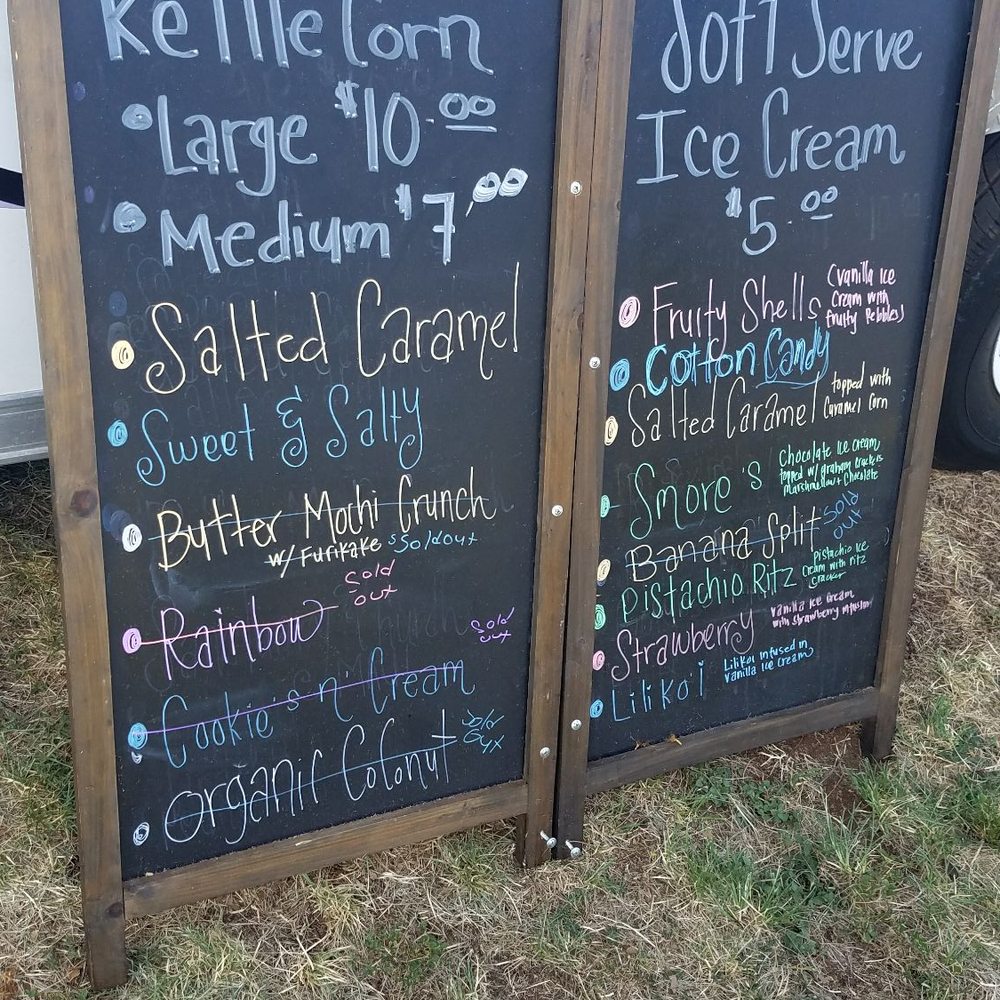 Kettle Corn
Large $10.00
Medium $7.00
Salted Caramel
Sweet & Salty
Butter Mochi Crunch
w/ Furikake sold out
Rainbow
Sold
out
Cookie's n' Cream
Sold
out
Organic Coconut
Sold
out
Soft Serve
Ice Cream
$5.00
Fruity Shells
(vanilla Ice
Cream with
fruity Pebbles)
Cotton Candy
Salted Caramel
topped with
Caramel Corn
Smore's
Chocolate Ice Cream
topped w/ graham crackers
Marshmellow + Chocolate
Banana Split
Sold
out
Pistachio Ritz
Pistachio Ice
Cream with ritz
cracker
Strawberry
Vanilla Ice Cream
with strawberry infusion
Liliko'i
Lilikoi infused in
Vanilla Ice Cream